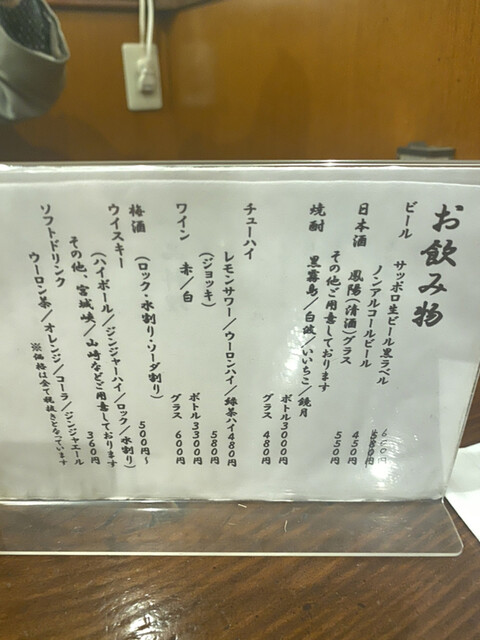 お飲み物
ビール サッポロ生ビール黒ラベル 600円
ノンアルコールビール 580円
日本酒 鳳陽(清酒)グラス 450円
その他ご用意しております 550円
焼酎 黒霧島/白波/いいちこ/鏡月
ボトル3000円
グラス 480円
チューハイ
レモンサワー/ウーロンハイ/緑茶ハイ480円
(ジョッキ) 580円
ワイン 赤/白
ボトル3300円
グラス 600円
梅酒 (ロック・水割り・ソーダ割り) 500円~
ウイスキー
(ハイボール/ジンジャーハイ/ロック/水割り)
その他、宮城峡/山崎などご用意しております
ソフトドリンク 360円
ウーロン茶/オレンジ/コーラ/ジンジャエール
※価格は全て税抜きとなっています